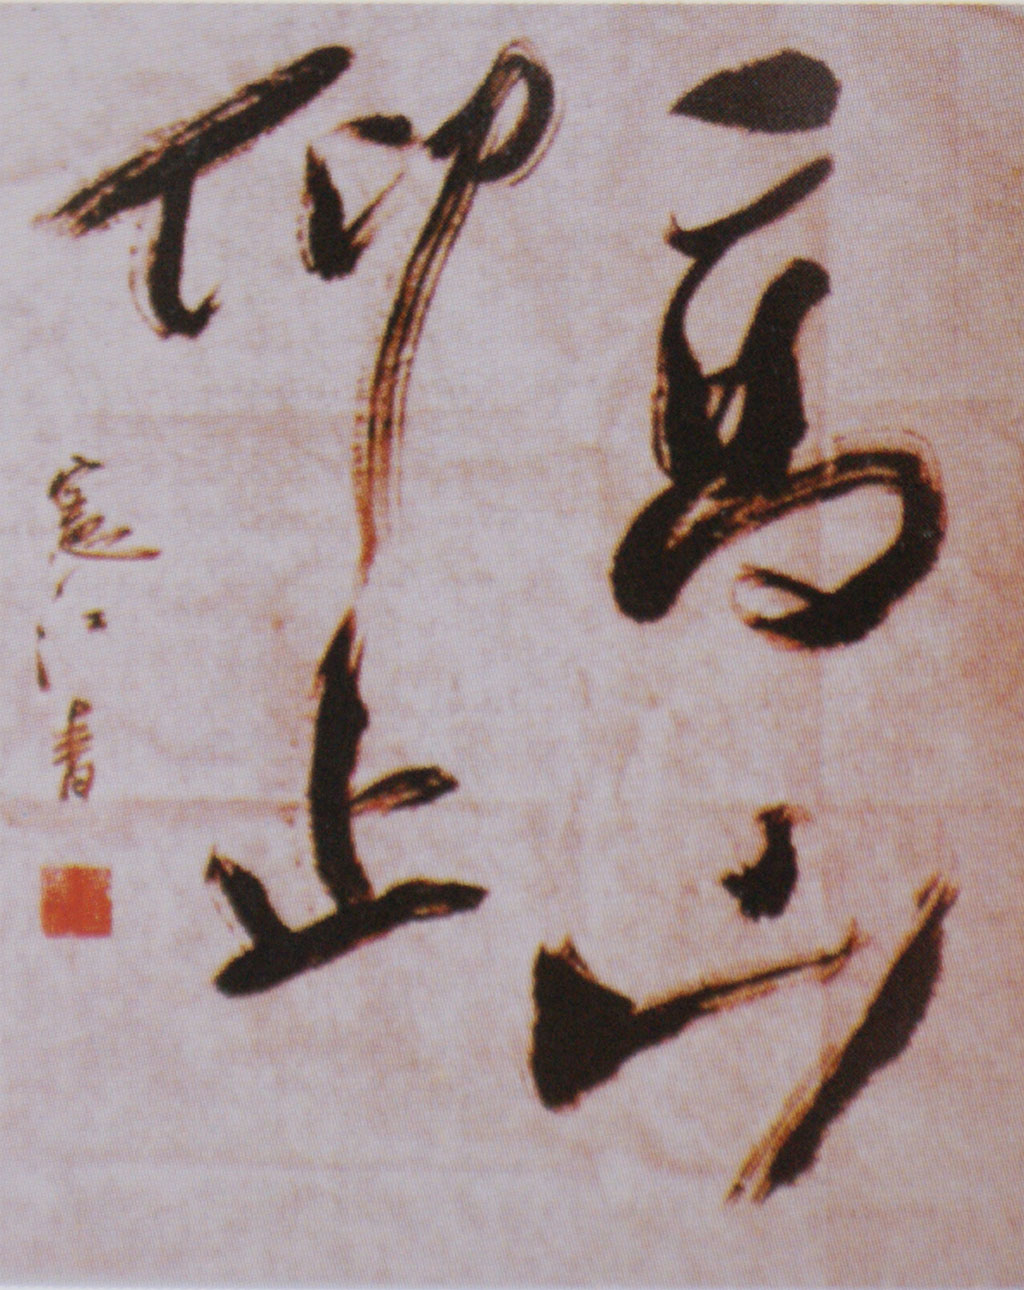 高山
仰止
寒江書